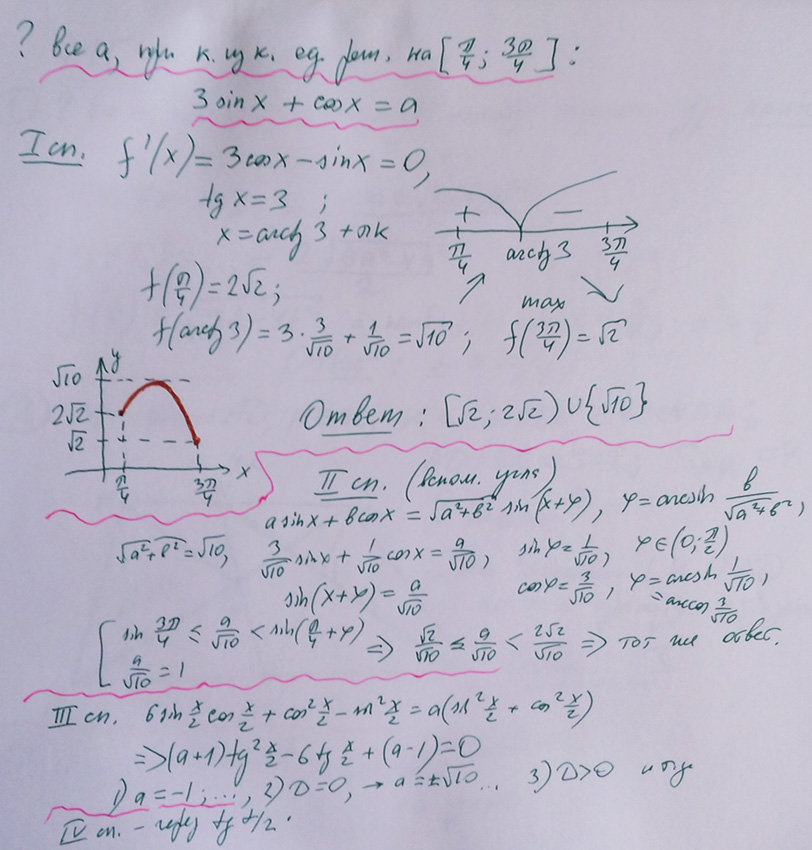 ? все a, при к. ур к. ед. реш. на [π/4; 3π/4]:
3 sin x + cos x = a
I сп. f'(x) = 3cos x - sin x = 0,
tg x = 3 ;
x = arctg 3 + πk
+ −
π/4 arctg 3 3π/4
max
f(π/4) = 2√2;
f(arctg 3) = 3 · 3/√10 + 1/√10 = √10 ; f(3π/4) = √2
y
√10
2√2
√2
π/4 3π/4 x
Ответ : [√2; 2√2) ∪ {√10}
II сп. (вспом. угла)
a sin x + b cos x = √(a²+b²) sin(x+φ), φ = arcsin b/√(a²+b²),
√(a²+b²) = √10, 3/√10 sin x + 1/√10 cos x = a/√10, sin φ = 1/√10, φ ∈ (0; π/2)
sin(x+φ) = a/√10 cos φ = 3/√10, φ = arcsin 1/√10,
= arccos 3/√10
[ sin 3π/4 ≤ a/√10 < sin(π/4 + φ) => √2/√10 ≤ a/√10 < 2√2/√10 => тот же ответ.
a/√10 = 1
III сп. 6 sin x/2 cos x/2 + cos² x/2 - sin² x/2 = a(sin² x/2 + cos² x/2)
=> (a+1) tg² x/2 - 6 tg x/2 + (a-1) = 0
1) a = -1; ..., 2) D = 0, → a = ±√10 ... 3) D > 0 и тд
IV сп. - через tg